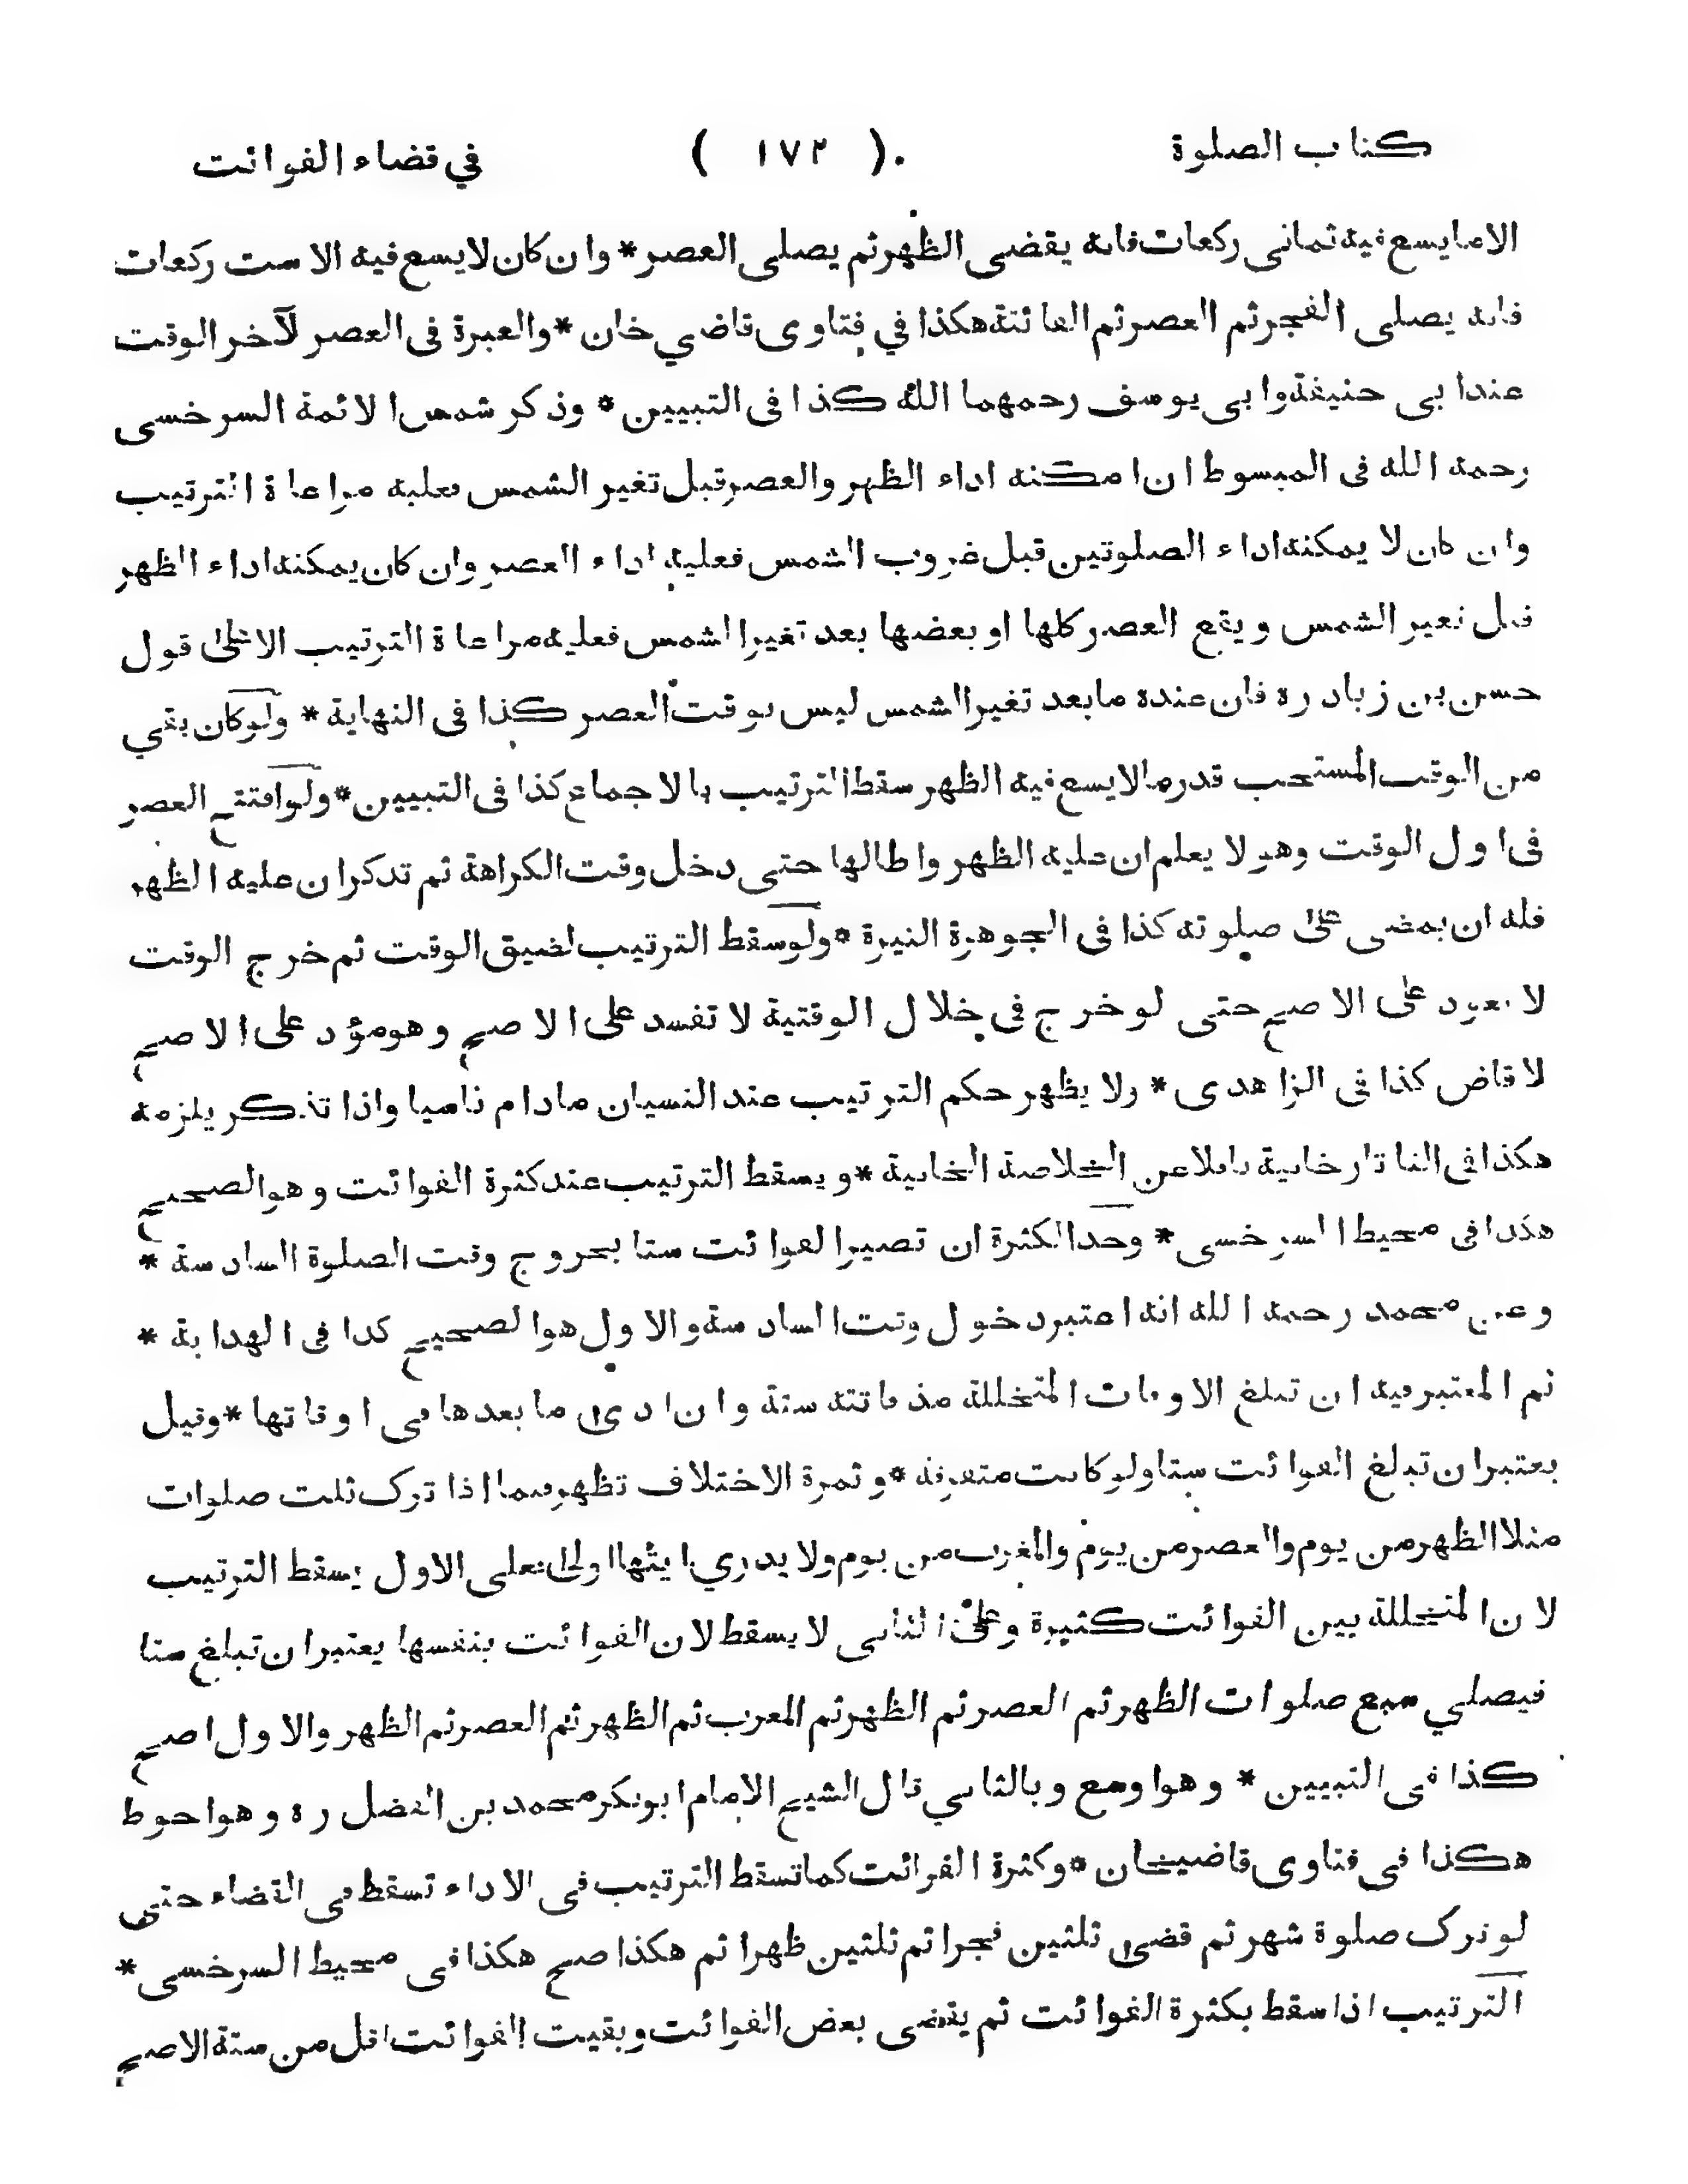 كتاب الصلوة ( ١٧٢ ) في قضاء الفوائت
الا ما يسع فيه ثماني ركعات فانه يقضى الظهر ثم يصلى العصر * وان كان لا يسع فيه الا ست ركعات
فانه يصلى الفجر ثم العصر ثم الفائتة هكذا في فتاوى قاضي خان * والعبرة فى العصر لآخر الوقت
عند ابى حنيفة وابى يوسف رحمهما الله كذا فى التبيين * وذكر شمس الائمة السرخسى
رحمه الله فى المبسوط ان امكنه اداء الظهر والعصر قبل تغير الشمس فعليه مراعاة الترتيب
وان كان لا يمكنه اداء الصلوتين قبل غروب الشمس فعليه اداء العصر وان كان يمكنه اداء الظهر
قبل تغير الشمس ويقع العصر كلها او بعضها بعد تغير الشمس فعليه مراعاة الترتيب الا على قول
حسن بن زياد ره فان عنده ما بعد تغير الشمس ليس بوقت العصر كذا فى النهاية * ولو كان بقي
من الوقت المستحب قدر ما لا يسع فيه الظهر سقط الترتيب بالاجماع كذا فى التبيين * ولو افتتح العصر
فى اول الوقت وهو لا يعلم ان عليه الظهر واطالها حتى دخل وقت الكراهة ثم تذكر ان عليه الظهر
فله ان يمضى على صلوته كذا فى الجوهرة النيرة * ولو سقط الترتيب لضيق الوقت ثم خرج الوقت
لا يعود على الاصح حتى لو خرج فى خلال الوقتية لا تفسد على الاصح وهو مؤد على الاصح
لا قاض كذا فى الزاهدى * ولا يظهر حكم الترتيب عند النسيان ما دام ناسيا واذا تذكر يلزمه
هكذا فى التاتارخانية ناقلا عن الخلاصة الخانية * ويسقط الترتيب عند كثرة الفوائت وهو الصحيح
هكذا فى محيط السرخسى * وحد الكثرة ان تصير الفوائت ستا بخروج وقت الصلوة السادسة *
وعن محمد رحمه الله انه اعتبر دخول وقت السادسة والاول هو الصحيح كذا فى الهداية *
ثم المعتبر فيه ان تبلغ الاوقات المتخللة مذ فاتته ستة وان ادى ما بعدها فى اوقاتها * وقيل
يعتبر ان تبلغ الفوائت ستا ولو كانت متفرقة * وثمرة الاختلاف تظهر فيما اذا ترك ثلث صلوات
مثلا الظهر من يوم والعصر من يوم والمغرب من يوم ولا يدري ايتها اولى فعلى الاول يسقط الترتيب
لان المتخللة بين الفوائت كثيرة وعلى الثانى لا يسقط لان الفوائت بنفسها يعتبر ان تبلغ ستا
فيصلي سبع صلوات الظهر ثم العصر ثم الظهر ثم المغرب ثم الظهر ثم العصر ثم الظهر والاول اصح
كذا فى التبيين * وهو اوسع وبالثاني قال الشيخ الامام ابو بكر محمد بن الفضل ره وهو احوط
هكذا فى فتاوى قاضيخان * وكثرة الفوائت كما تسقط الترتيب فى الاداء تسقط فى القضاء حتى
لو ترك صلوة شهر ثم قضى ثلثين فجرا ثم ثلثين ظهرا ثم هكذا صح هكذا فى محيط السرخسى *
الترتيب اذا سقط بكثرة الفوائت ثم يقضى بعض الفوائت وبقيت الفوائت اقل من ستة الاصح